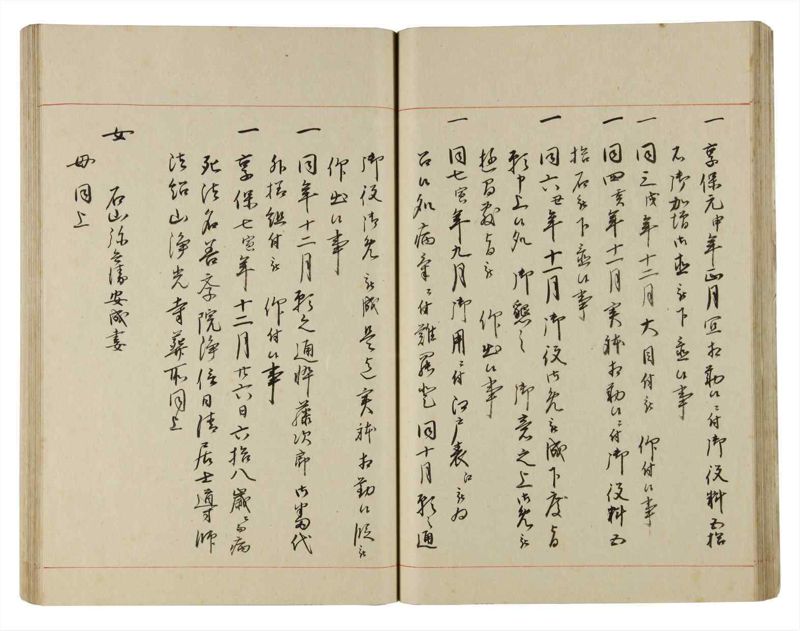 一 享保元申年正月宜相勤候ニ付御役料五拾
石御加増被下置候事
一 同三戌年十二月大目付被 仰付候事
一 同四亥年十二月実躰相勤候ニ付御役料五
拾石被下置候事
一 同六丑年十一月御役御免被成下度旨
願申上候処 御懇之 御意之上御免被
旨被 仰出候事
一 同七寅年九月御用ニ付江戸表江被為
召候処病気ニ付難罷登同十月願之通
御役御免被成是迄実躰相勤候段被
仰出候事
一 同年十二月願之通忰藤次郎御番代
外様組付被 仰付候事
一 享保七寅年十二月廿六日六拾八歳ニ而病
死法名善孝院浄信日清居士導師
法紹山浄光寺葬所同上
女 石山弥兵衛安成妻
母同上